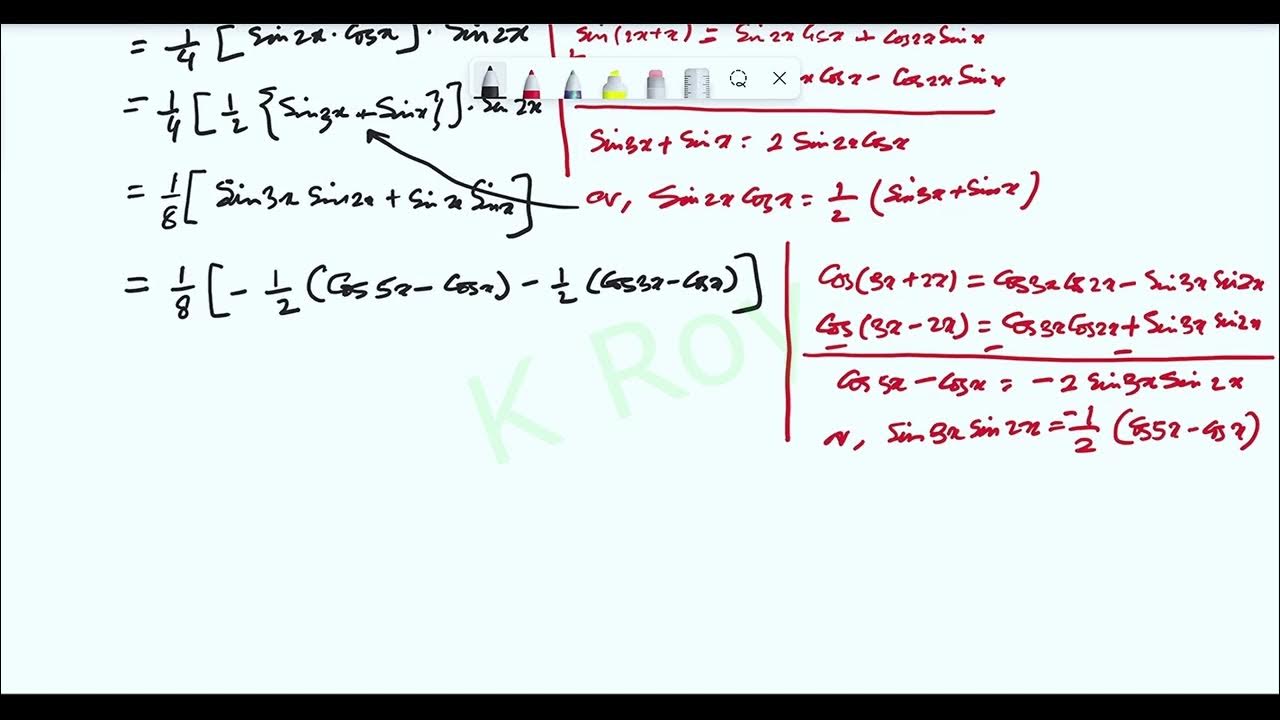 = 1/4 [Sin2x · Cosx] · Sin2x
= 1/4 [1/2 {Sin3x + Sinx}] · Sin 2x
= 1/8 [Sin3x Sin2x + Sinx Sinx]
= 1/8 [- 1/2 (Cos 5x - Cosx) - 1/2 (Cos3x - Cosx)]
Sin(2x+x) = Sin2x Cosx + Cos2x Sinx
Cosx - Cos2x Sinx
Sin3x + Sinx = 2 Sin2x Cosx
or, Sin2x Cosx = 1/2 (Sin3x + Sinx)
Cos(3x+2x) = Cos3x Cos2x - Sin3x Sin2x
Cos(3x-2x) = Cos3x Cos2x + Sin3x Sin2x
Cos5x - Cosx = -2 Sin3x Sin2x
or, Sin3x Sin2x = -1/2 (Cos5x - Cosx)
K Roy